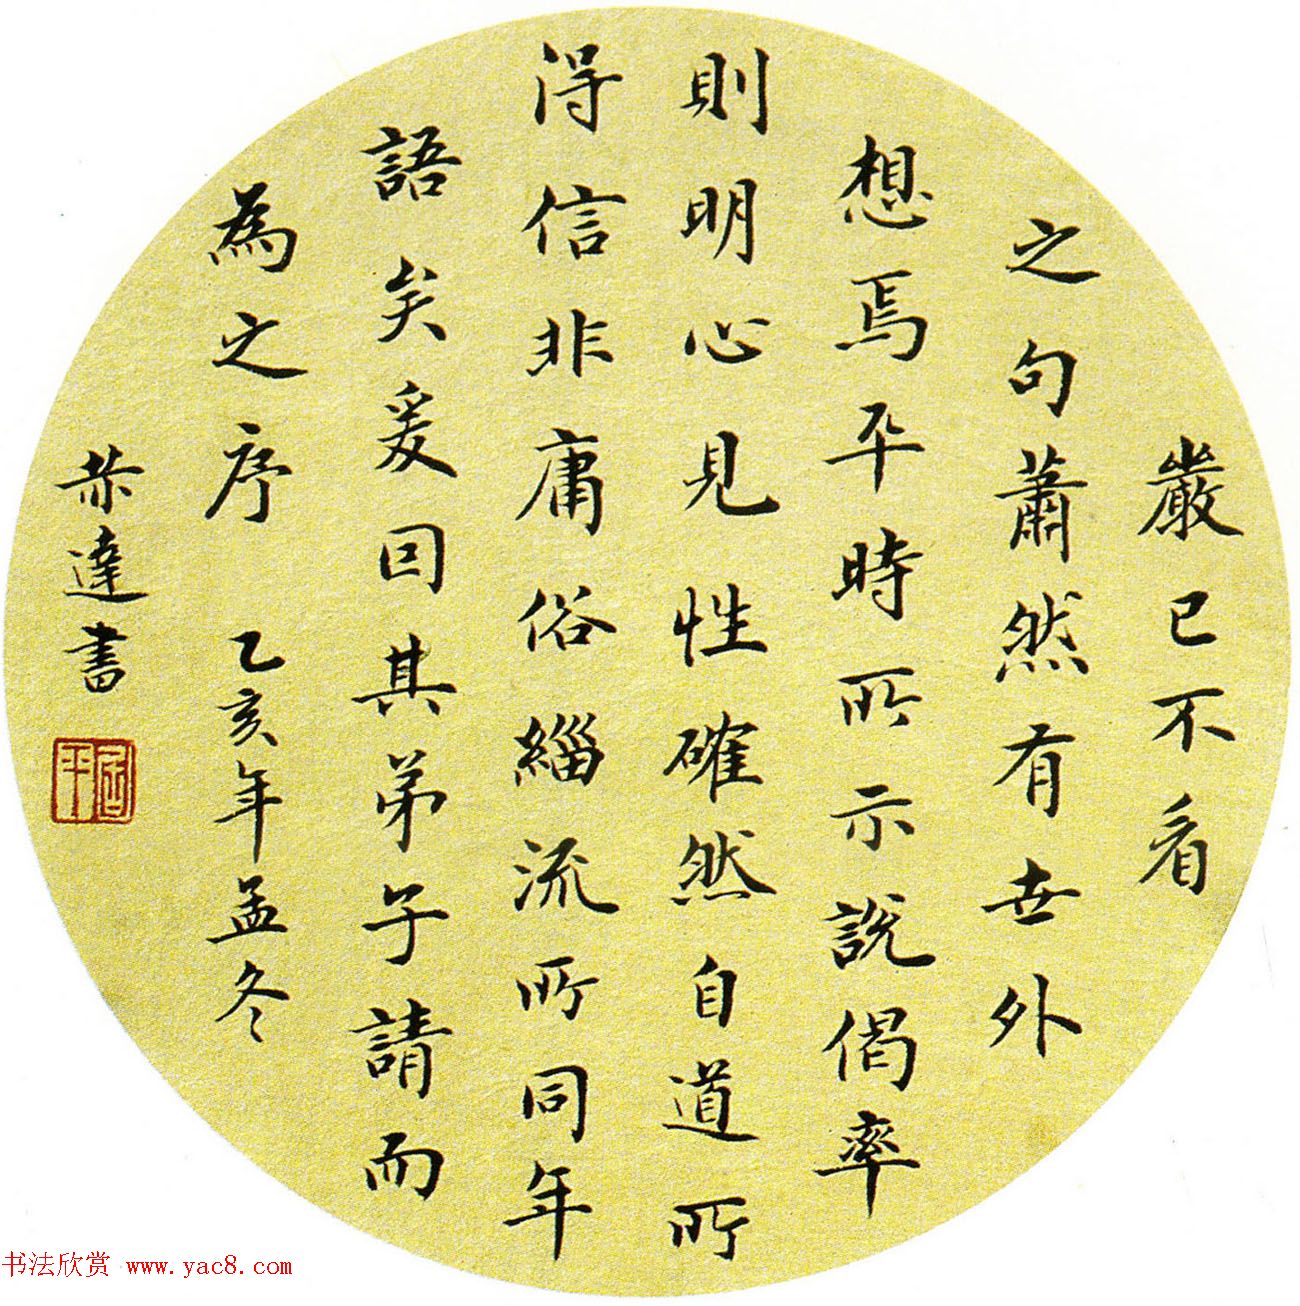 巖已不看
之句蕭然有世外
想焉平時所示說偈率
則明心見性確然自道所
得信非庸俗緇流所同年
語矣爰因其弟子請而
為之序 乙亥年孟冬
恭達書
书法欣赏 www.yac8.com